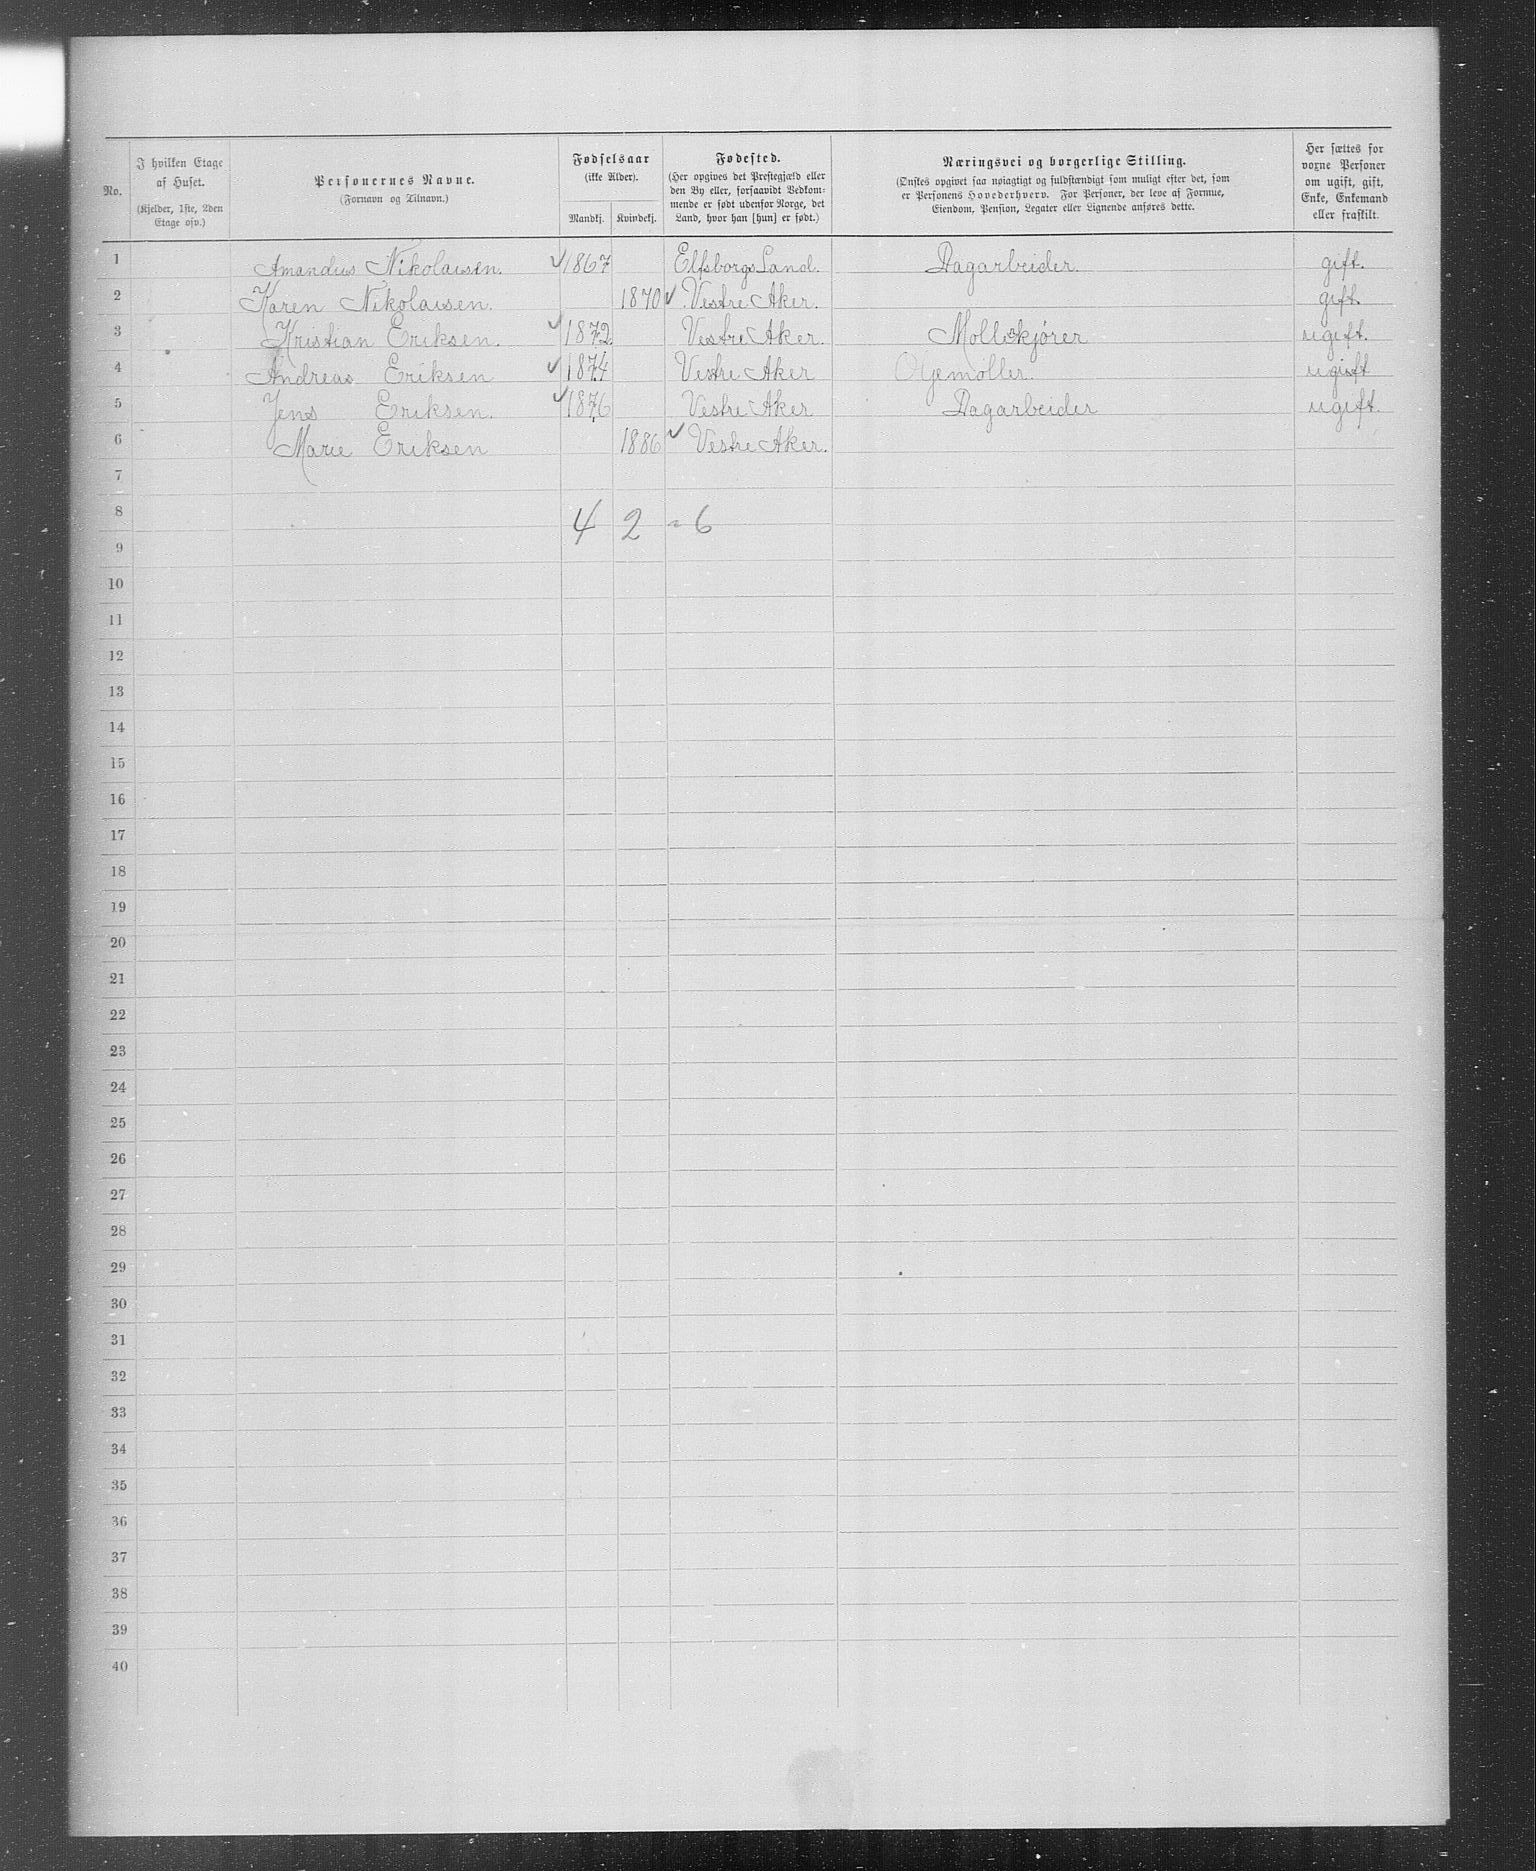 No. | I hvilken Etage af Huset. (Kjelder, 1ste, 2den Etage osv.) | Personernes Navne. (Fornavn og Tilnavn.) | Fødselsaar (ikke Alder). Mandkj. | Kvindekj. | Fødested. (Her opgives det Prestegjæld eller den By eller, forsaavidt Vedkommende er født udenfor Norge, det Land, hvor han [hun] er født.) | Næringsvei og borgerlige Stilling. (Ønskes opgivet saa nøiagtigt og fuldstændigt som muligt efter det, som er Personens Hovederhverv. For Personer, der leve af Formue, Eiendom, Pension, Legater eller Lignende anføres dette. | Her sættes for voxne Personer om ugift, gift, Enke, Enkemand eller fraskilt.
1 Amandus Nikolaisen. ✓ 1867 Elfsborgs Land. Dagarbeider. gift.
2 Karen Nikolaisen. 1870 ✓ Vestre Aker. gift.
3 Kristian Eriksen. ✓ 1872 Vestre Aker. Mollekjører ugift.
4 Andreas Eriksen ✓ 1874 Vestre Aker Oljemoller. ugift
5 Jens Eriksen. ✓ 1876 Vestre Aker Dagarbeider ugift.
6 Marie Eriksen 1886 ✓ Vestre Aker.
7
8 4 2 = 6
9
10
11
12
13
14
15
16
17
18
19
20
21
22
23
24
25
26
27
28
29
30
31
32
33
34
35
36
37
38
39
40